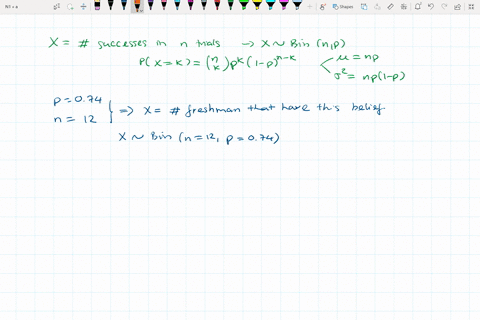 X = # successes in n trials → X ~ Bin (n,p)
P(X=k) = (n k) p^k (1-p)^{n-k}
μ = np
σ² = np(1-p)
p = 0.74
n = 12
⇒ X = # freshman that have this belief
X ~ Bin (n=12, p=0.74)
Shapes